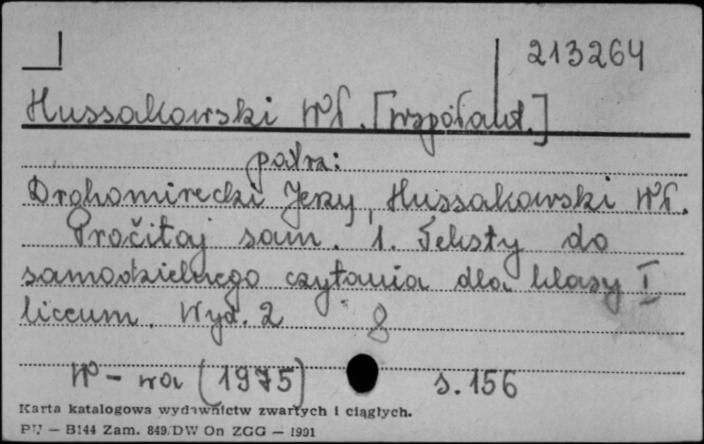 213264
Hussakowski Wł. [współaut.]
patrz:
Drohomirecki Jerzy, Hussakowski Wł.
Pročitaj sam. 1. Teksty do
samodzielnego czytania dla klasy I
liceum. Wyd. 2 8
W-wa (1975) s. 156
Karta katalogowa wydawnictw zwartych i ciągłych.
PU — B144 Zam. 849/DW On ZGG — 1991